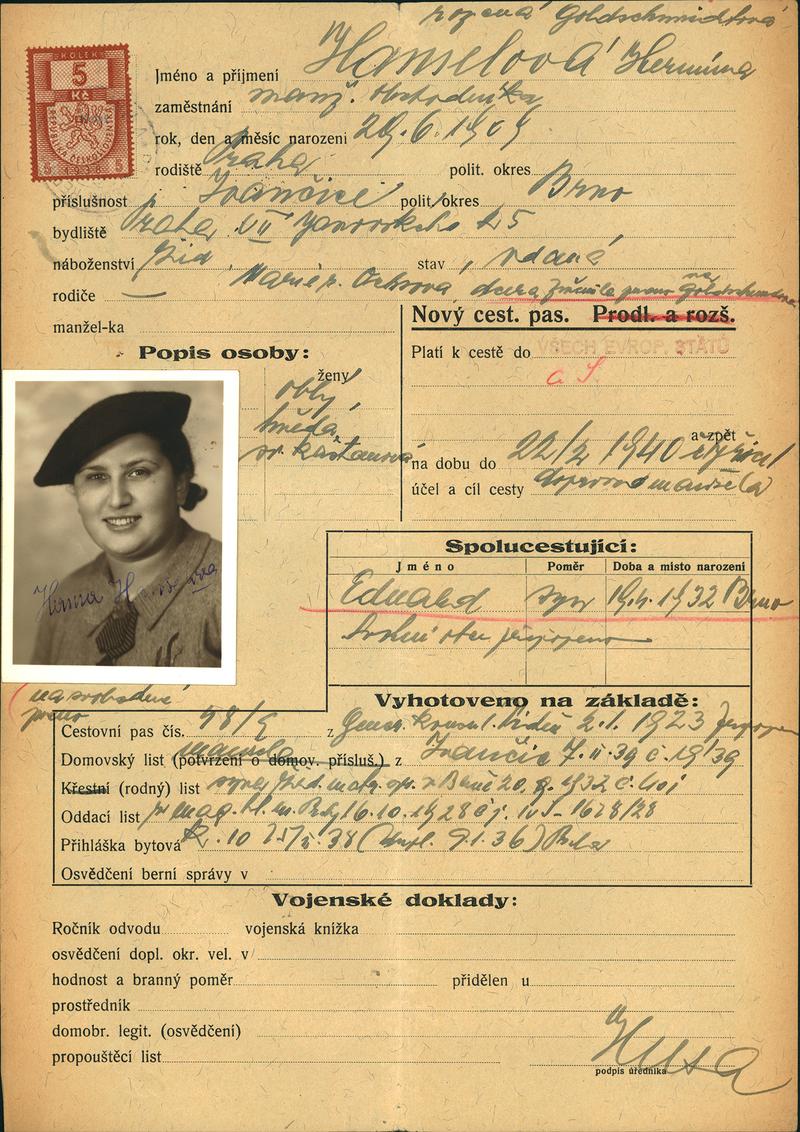 rozená Goldschmidtová
KOLEK
5
Kč
REPUBLIKA ČESKOSLOVENSKÁ
Jméno a příjmení Hanselová Hermína
zaměstnání manž. obchodníka
rok, den a měsíc narození 29.6.1909
rodiště Praha polit. okres
příslušnost Ivančice polit. okres Brno
bydliště Praha VII Janovského 25
náboženství žid. stav vdaná
rodiče Marie r. Ochsova, dcera
manžel-ka
Nový cest. pas. Prodl. a rozš.
Popis osoby:
Platí k cestě do VŠECH EVROP. STÁTŮ
ženy
oblý
hnědá
sv. kaštanová
a zpět
na dobu do 22/2 1940
účel a cíl cesty doprovod manžela
Spolucestující:
Jméno Poměr Doba a místo narození
Eduard syn 19.4.1932 Brno
Hanna
na svobodné
jméno
Vyhotoveno na základě:
Cestovní pas čís. 98/9 z Gener. konsul. Vídeň 2.1.1923
manžela
Domovský list (potvrzení o domov. přísluš.) z Ivančic 7.II.39 č. 19/39
Křestní (rodný) list syna žid. mat. v Brně 20.9.1932
Oddací list mag. hl. m. Prahy 16.10.1928 čj. IV S-1678/28
Přihláška bytová 38 (dupl. 9.1.36)
Osvědčení berní správy v
Vojenské doklady:
Ročník odvodu vojenská knížka
osvědčení dopl. okr. vel. v
hodnost a branný poměr přidělen u
prostředník
domobr. legit. (osvědčení)
propouštěcí list
podpis úředníka